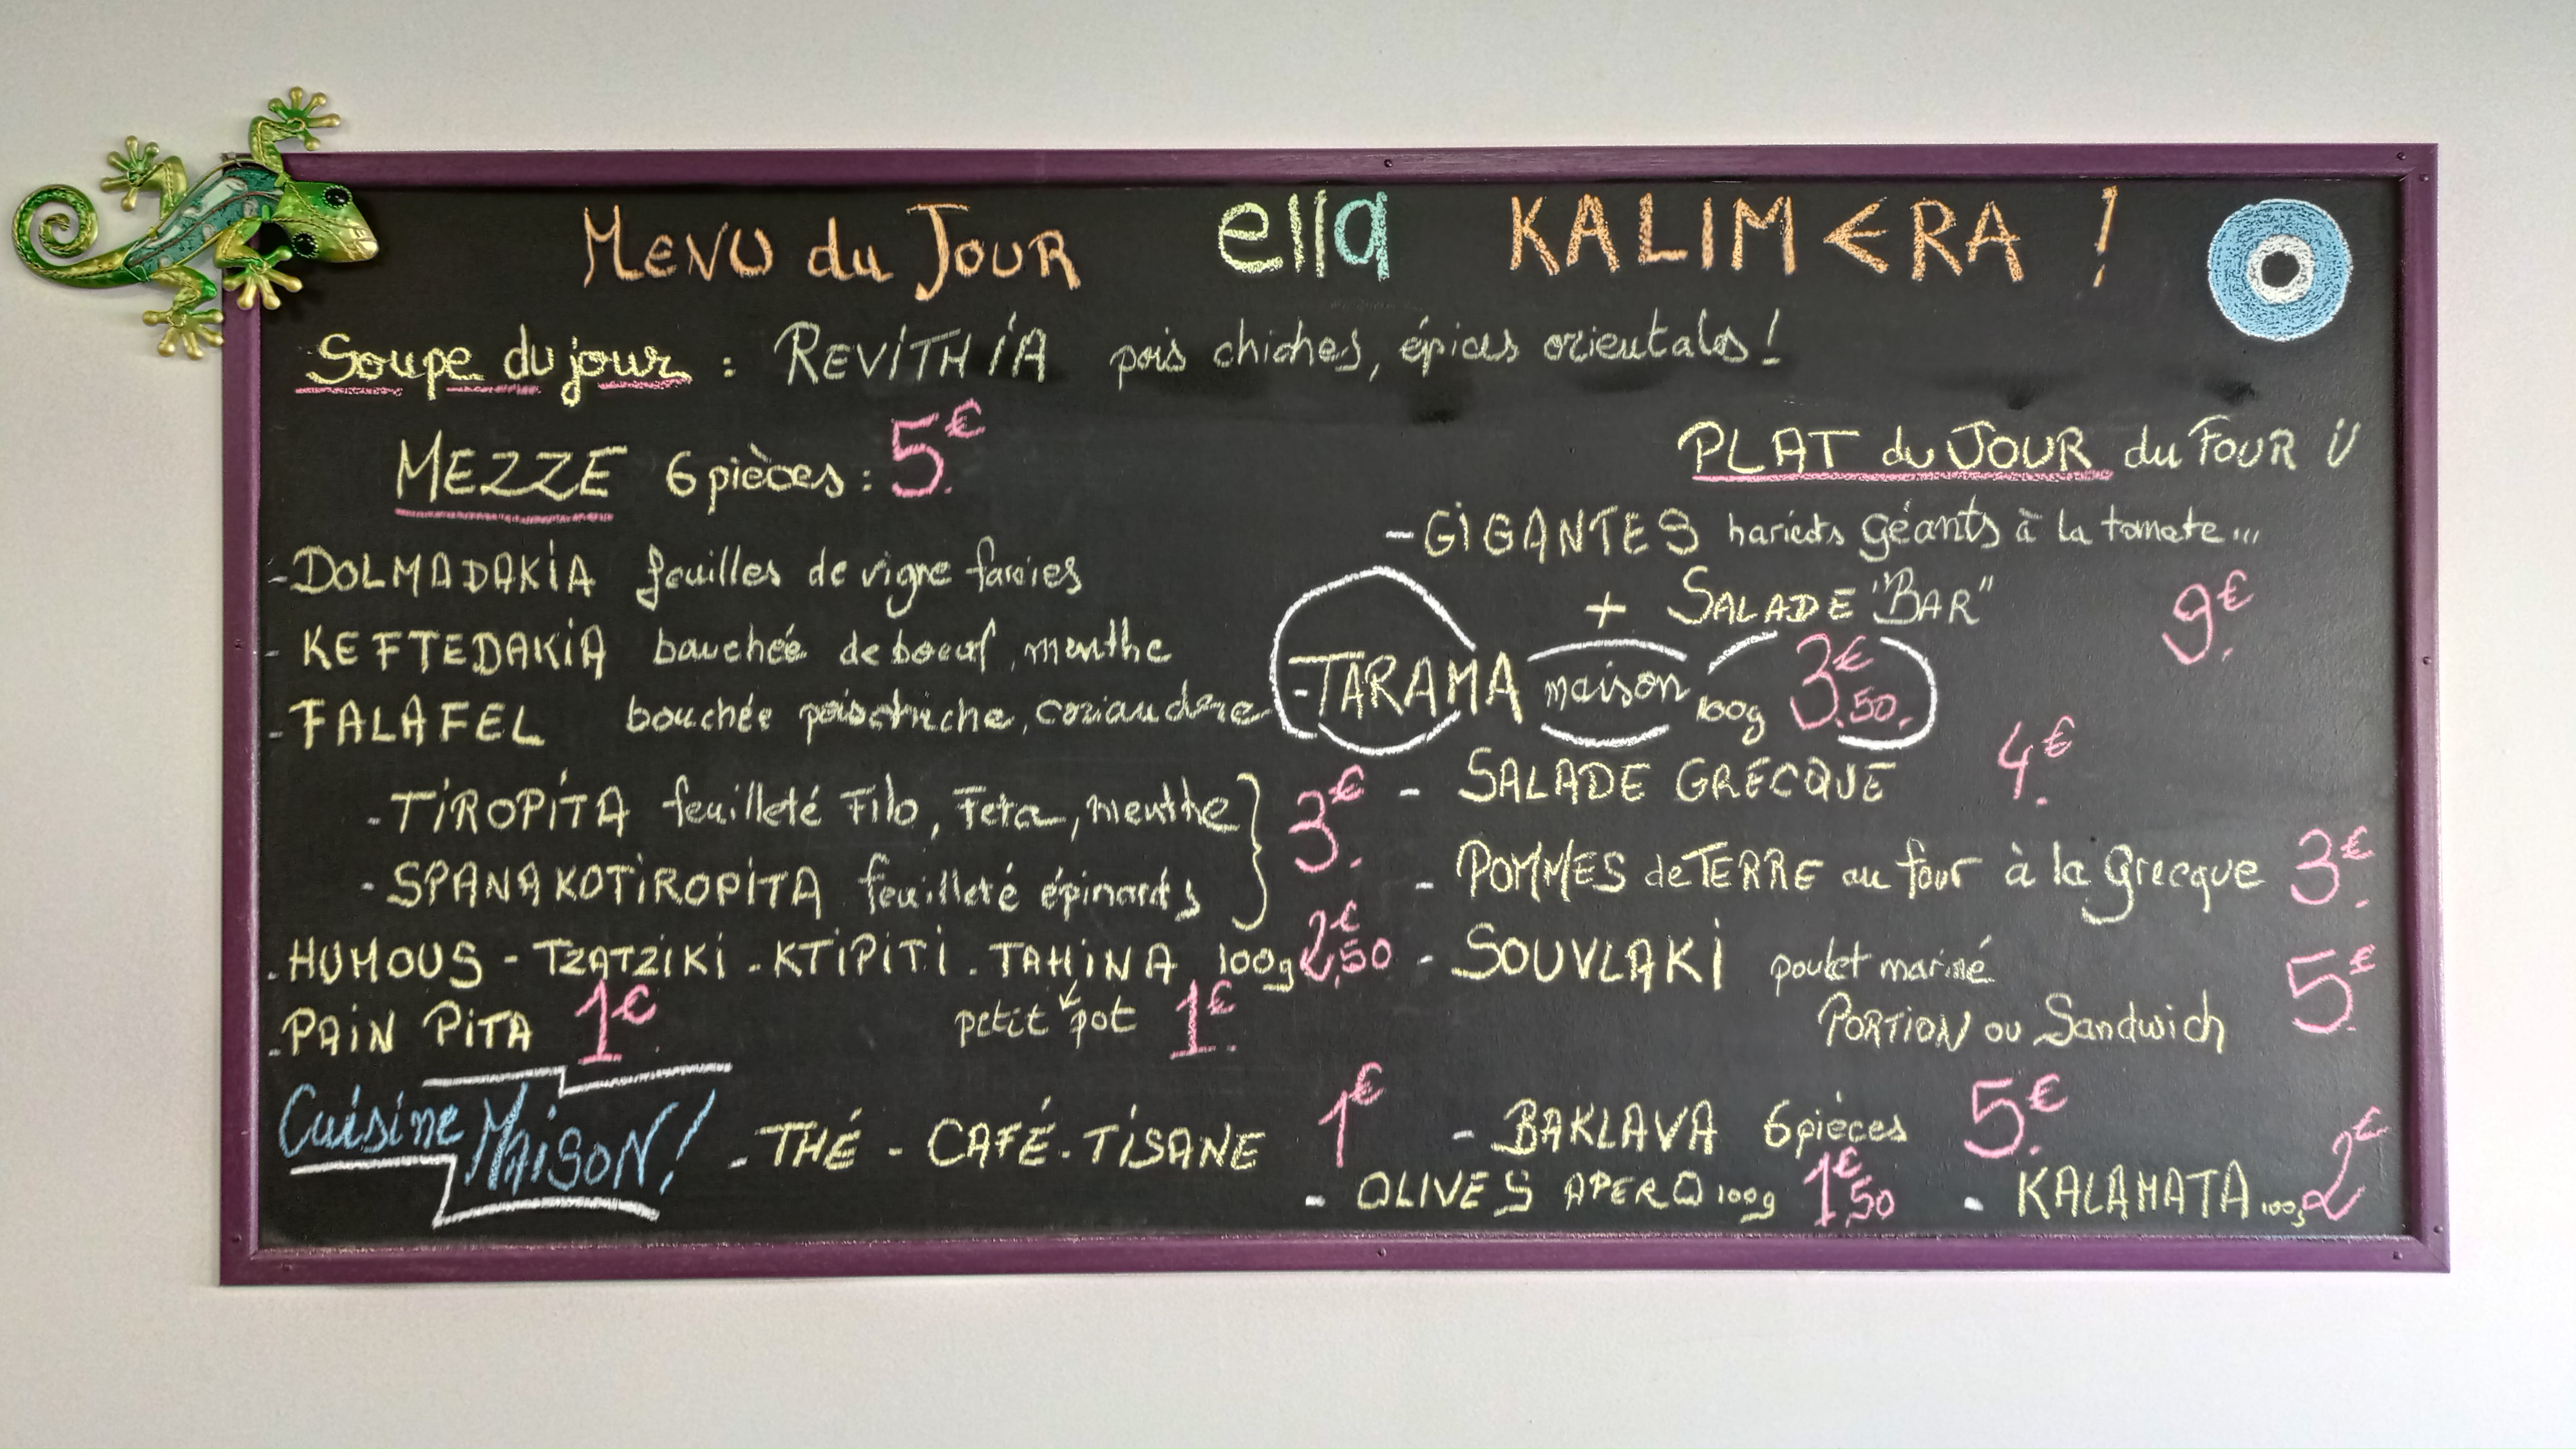 MENU du JOUR ella KALIMERA !
Soupe du jour : REVITHIA pois chiches, épices orientales !
MEZZE 6 pièces : 5€
- DOLMADAKIA feuilles de vigne farcies
- KEFTEDAKIA bouchée de boeuf, menthe
- FALAFEL bouchée poischiche, coriandre
- TIROPITA feuilleté Filo, Feta, menthe
3€
- SPANAKOTIROPITA feuilleté épinards
- HUMOUS - TZATZIKI - KTIPITI - TAHINA 100g 2€,50
- PAIN PITA 1€
petit pot 1€
Cuisine MAISON !
- THÉ - CAFÉ - TISANE 1€
PLAT du JOUR du FOUR
- GIGANTES haricots géants à la tomate...
+ SALADE "BAR" 9€
- TARAMA maison 100g 3€.50
- SALADE GRECQUE 4€
- POMMES de TERRE au four à la Grecque 3€
- SOUVLAKI poulet mariné
PORTION ou Sandwich 5€
- BAKLAVA 6 pièces 5€
- OLIVES APERO 100g 1€,50 - KALAMATA 100g 2€